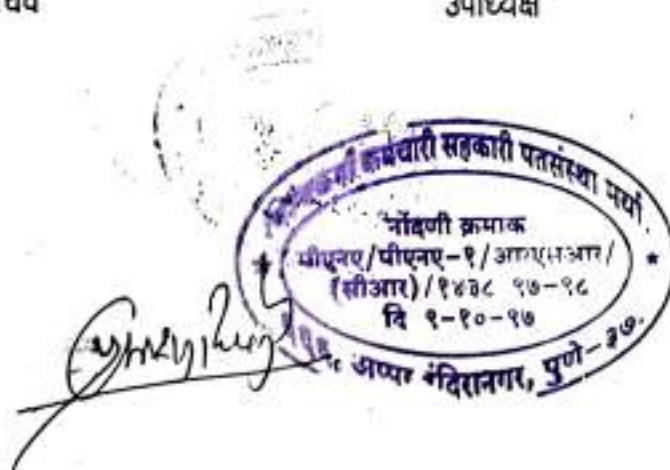 उपाध्यक्ष
कर्मचारी सहकारी पतसंस्था मर्या.
नोंदणी क्रमाक
पीएनए/पीएनए-१/आरएसआर/
(सीआर)/१४३८ ९७-९८
दि १-१०-९७
अप्पर इंदिरानगर, पुणे-३७.